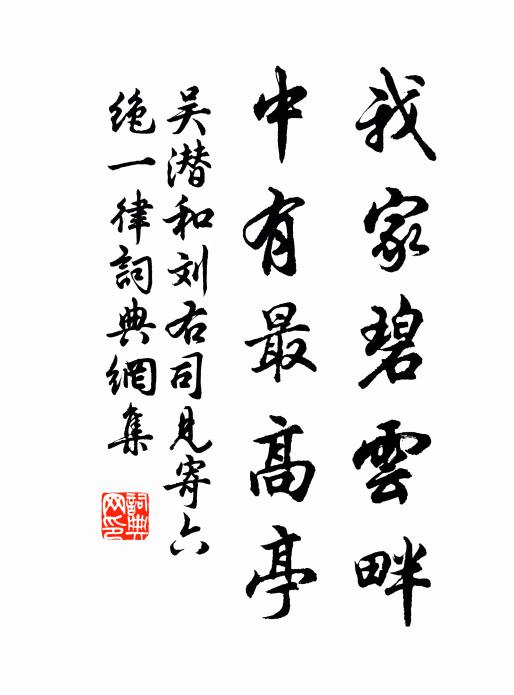 我家碧雲畔
中有最高亭
吴潜和刘右司見寄六
绝一律詞典網集
詞典
网印